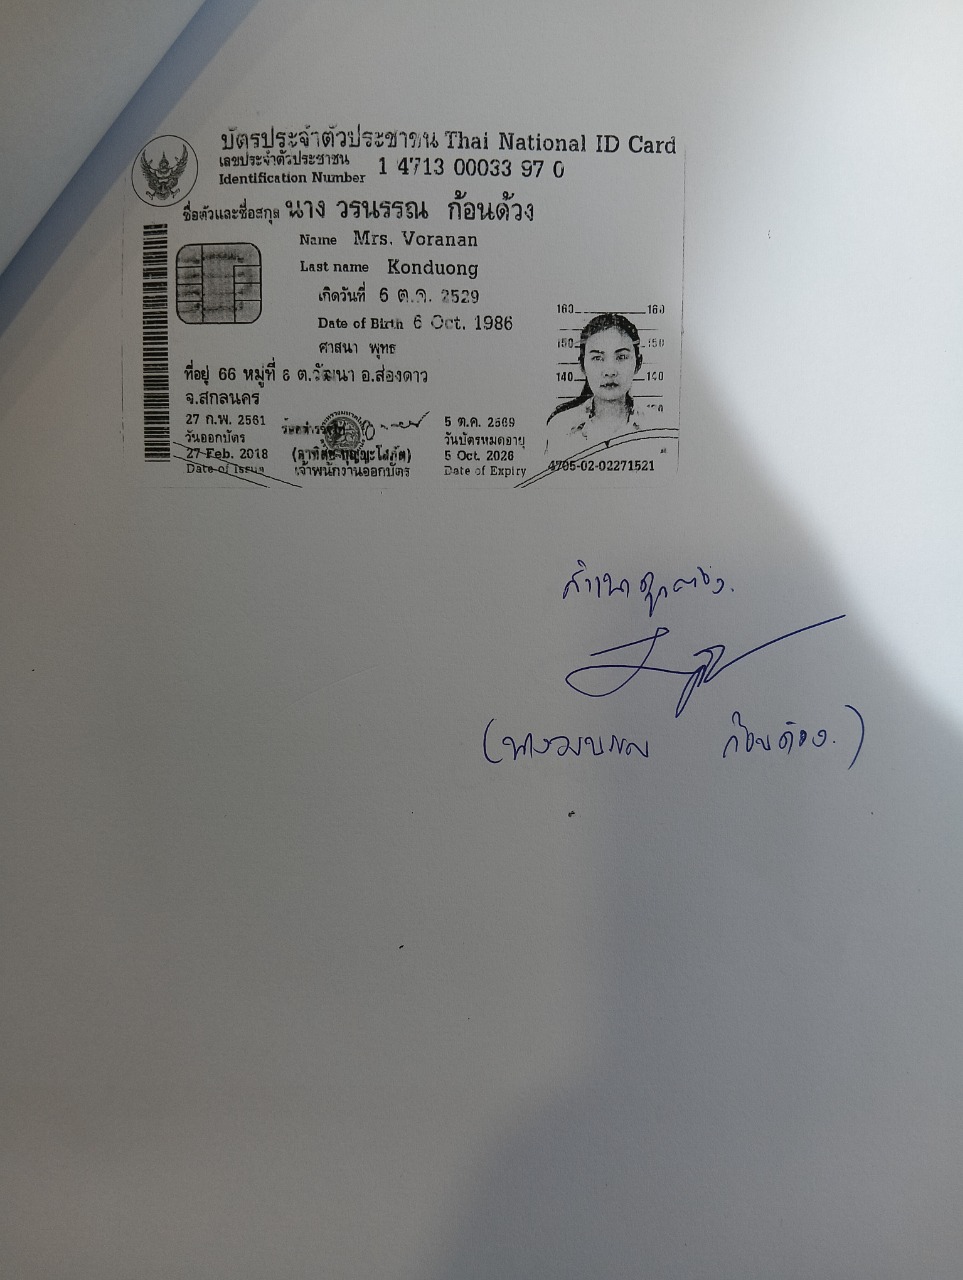 บัตรประจำตัวประชาชน Thai National ID Card
เลขประจำตัวประชาชน
Identification Number 1 4713 00033 97 0
ชื่อตัวและชื่อสกุล นาง วรนรรณ ก้อนด้วง
Name Mrs. Voranan
Last name Konduong
เกิดวันที่ 6 ต.ค. 2529
Date of Birth 6 Oct. 1986
ศาสนา พุทธ
ที่อยู่ 66 หมู่ที่ 8 ต.วัฒนา อ.ส่องดาว
จ.สกลนคร
27 ก.พ. 2561
วันออกบัตร
27 Feb. 2018
Date of Issue
เจ้าพนักงานออกบัตร
5 ต.ค. 2569
วันบัตรหมดอายุ
5 Oct. 2026
Date of Expiry
160 160
150 150
140 140
4705-02-02271521
สำเนาถูกต้อง.
(นางวรนรรณ ก้อนด้วง.)